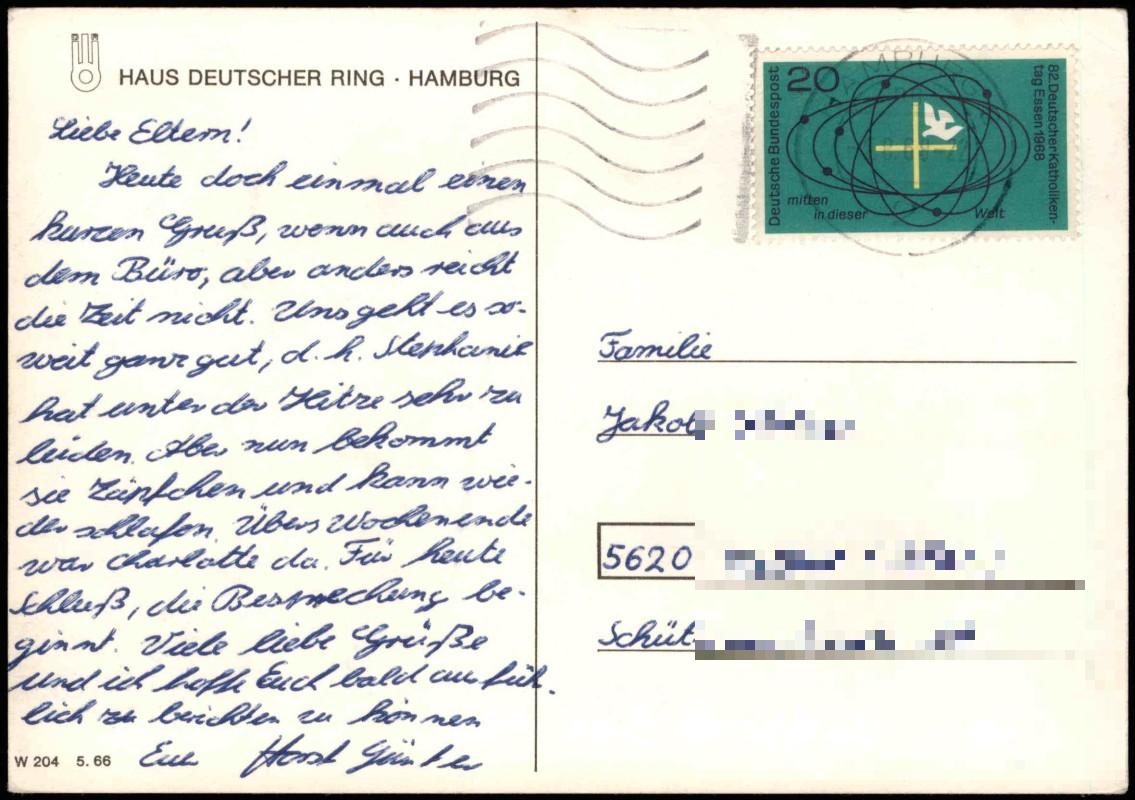 HAUS DEUTSCHER RING · HAMBURG
Liebe Eltern!
Heute doch einmal einen
kurzen Gruß, wenn auch aus
dem Büro, aber anders reicht
die Zeit nicht. Uns geht es so-
weit ganz gut, d. h. Stephanie
hat unter der Hitze sehr zu
leiden. Aber nun bekommt
sie Zäpfchen und kann wie-
der schlafen. Übers Wochenende
war Charlotte da. Für heute
Schluß, die Besprechung be-
ginnt. Viele liebe Grüße
und ich hoffe Euch bald ausführ-
lich zu berichten zu können
Euer Horst Günter
W 204 5. 66
HAMBURG
20
Deutsche Bundespost
82. Deutscher Katholiken-
tag Essen 1968
mitten
in dieser Welt
Familie
Jakob
5620
Schüt